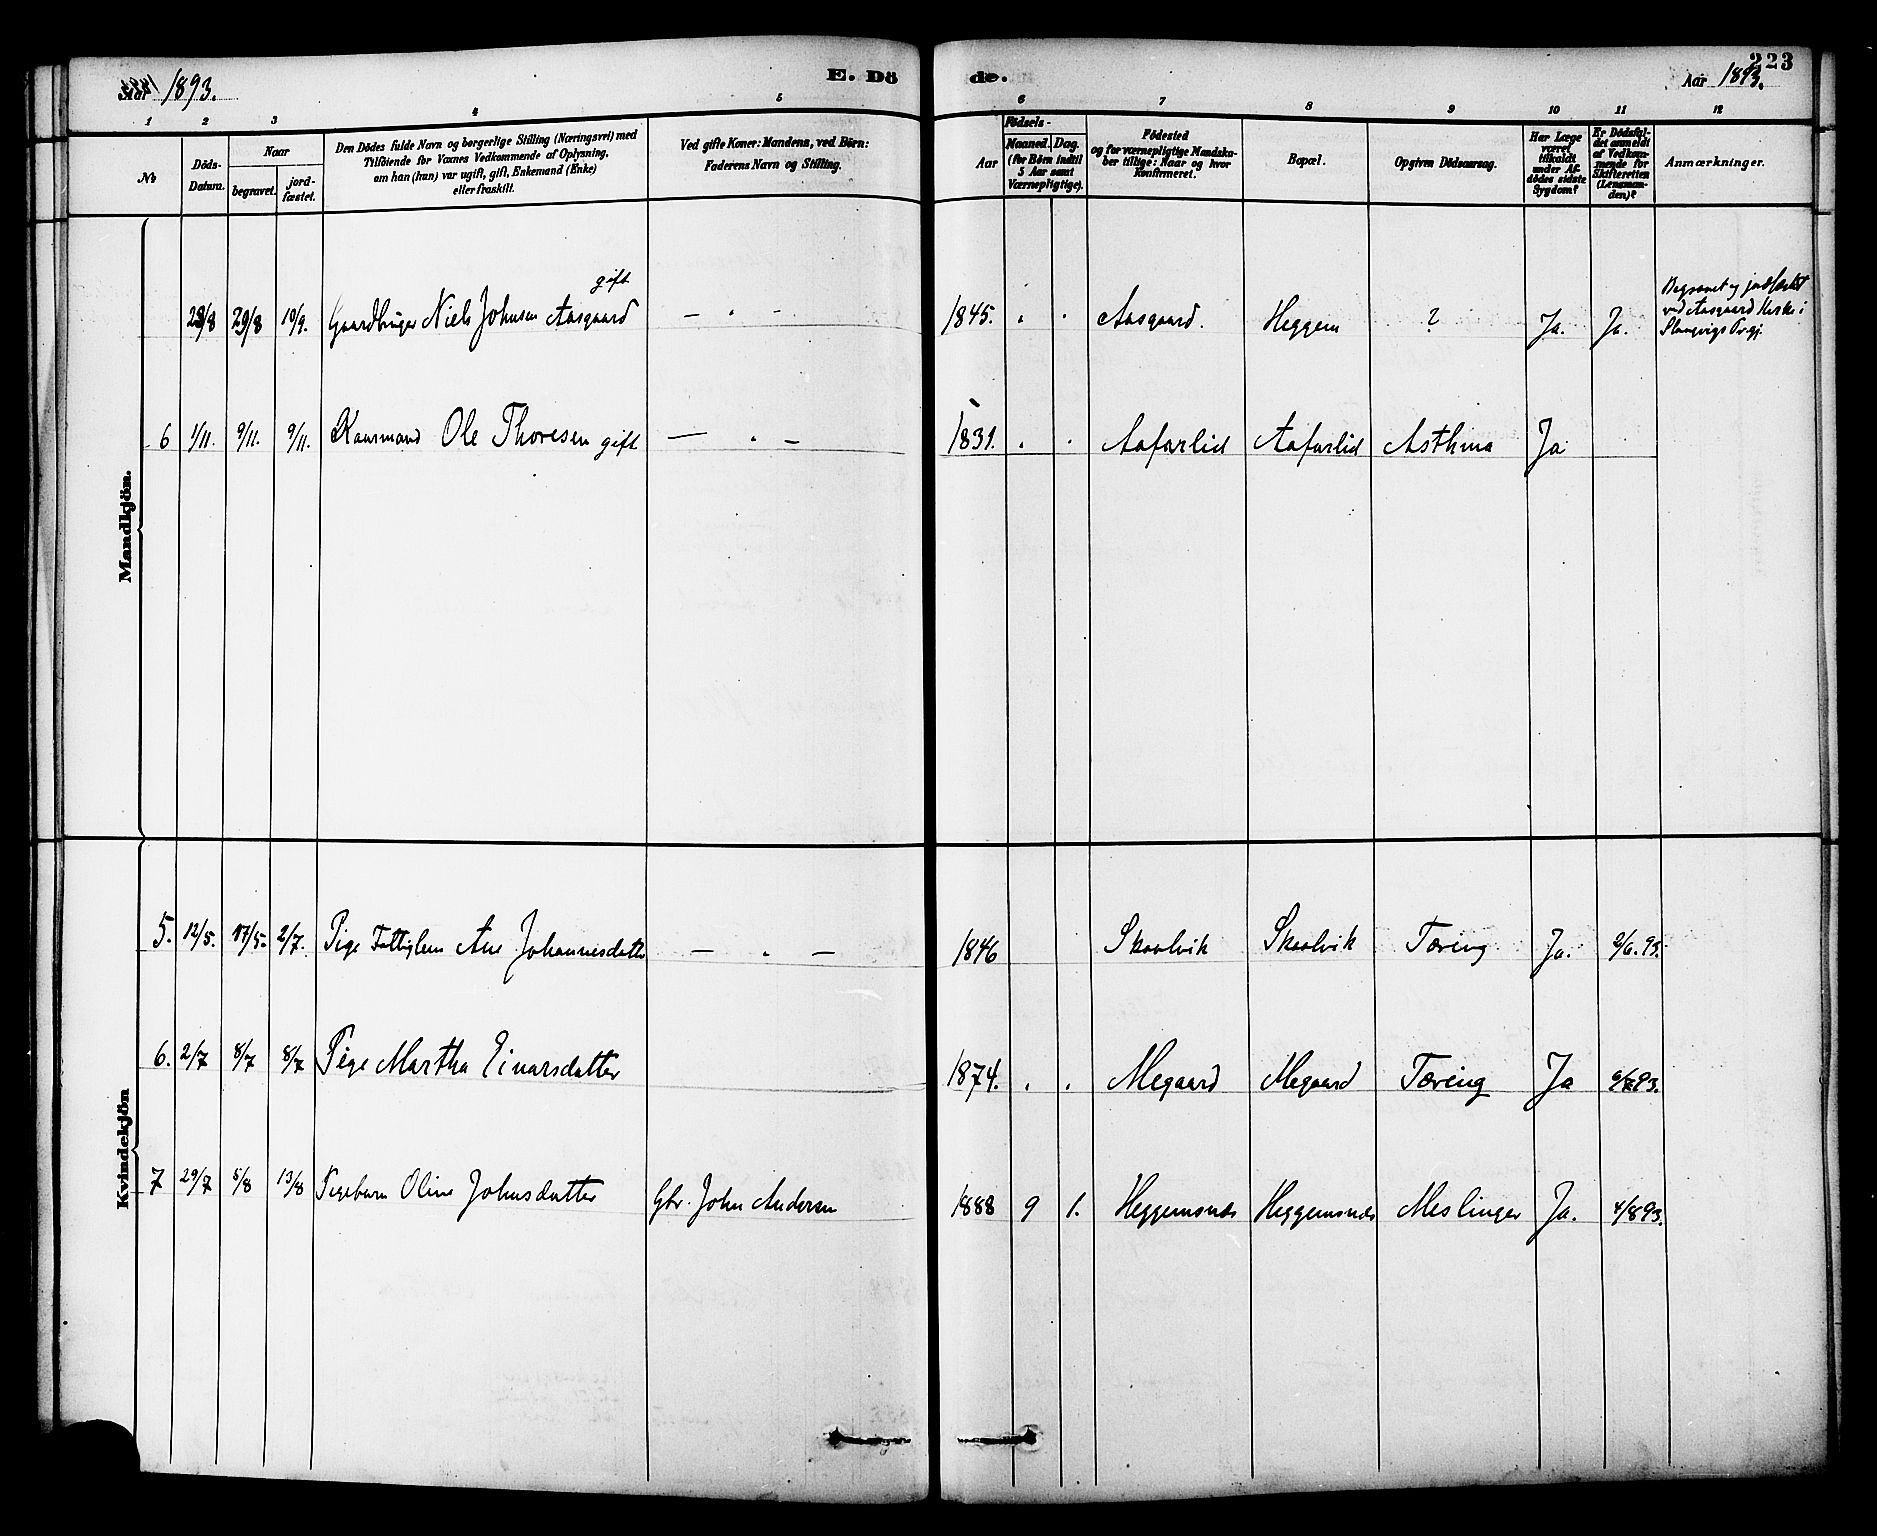 Aar 1893.
E. Dö
de.
223
Aar 1893.
1 2 3 4 5 6 7 8 9 10 11 12
No
Döds-
Datum.
Naar
begravet.
jord-
fæstet.
Den Dödes fulde Navn og borgerlige Stilling (Næringsvei) med
Tilföiende for Voxnes Vedkommende af Oplysning,
om han (hun) var ugift, gift, Enkemand (Enke)
eller fraskilt.
Ved gifte Koner: Mandens, ved Börn:
Faderens Navn og Stilling.
Födsels-
Aar
Maaned. Dag.
(for Börn indtil
5 Aar samt
Værnepligtige).
Födested
og for værnepligtige Mandska-
ber tillige: Naar og hvor
Konfirmeret.
Bopæl.
Opgiven Dödsaarsag.
Har Læge
været
tilkaldt
under Af-
dödes sidste
Sygdom?
Er Dödsfal-
det anmeldt
af Vedkom-
mende for
Skifteretten
(Lensman-
den)?
Anmærkninger.
Mandkjön.
gift
28/8 29/8 10/9. Gaardbruger Niels Johnsen Aasgaard — " — 1845. " " Aasgaard. Heggem ? Ja. Ja.
Begravet og jordfæstet
ved Aasgaard Kirke i
Stangvigs Prgj.
6 1/11. 9/11. 9/11. Kaarmand Ole Thoresen gift — " — 1831. " " Aafarlid Aafarlid Asthma Ja
Kvindekjön
5. 12/5. 17/5. 2/7. Pige Fattiglem Ane Johannesdatter — " — 1846 Skaalvik Skaalvik Tæring Ja. 2/6. 93.
6. 2/7 8/7 8/7 Pige Martha Einarsdatter 1874. " " Megaard Megaard Tæring Ja 6/7 93.
7 29/7 5/8 13/8 Pigebarn Oline Johnsdatter Gbr. John Andersen 1888 9 1. Heggemsnæs Heggemsnæs Meslinger Ja. 4/8 93.